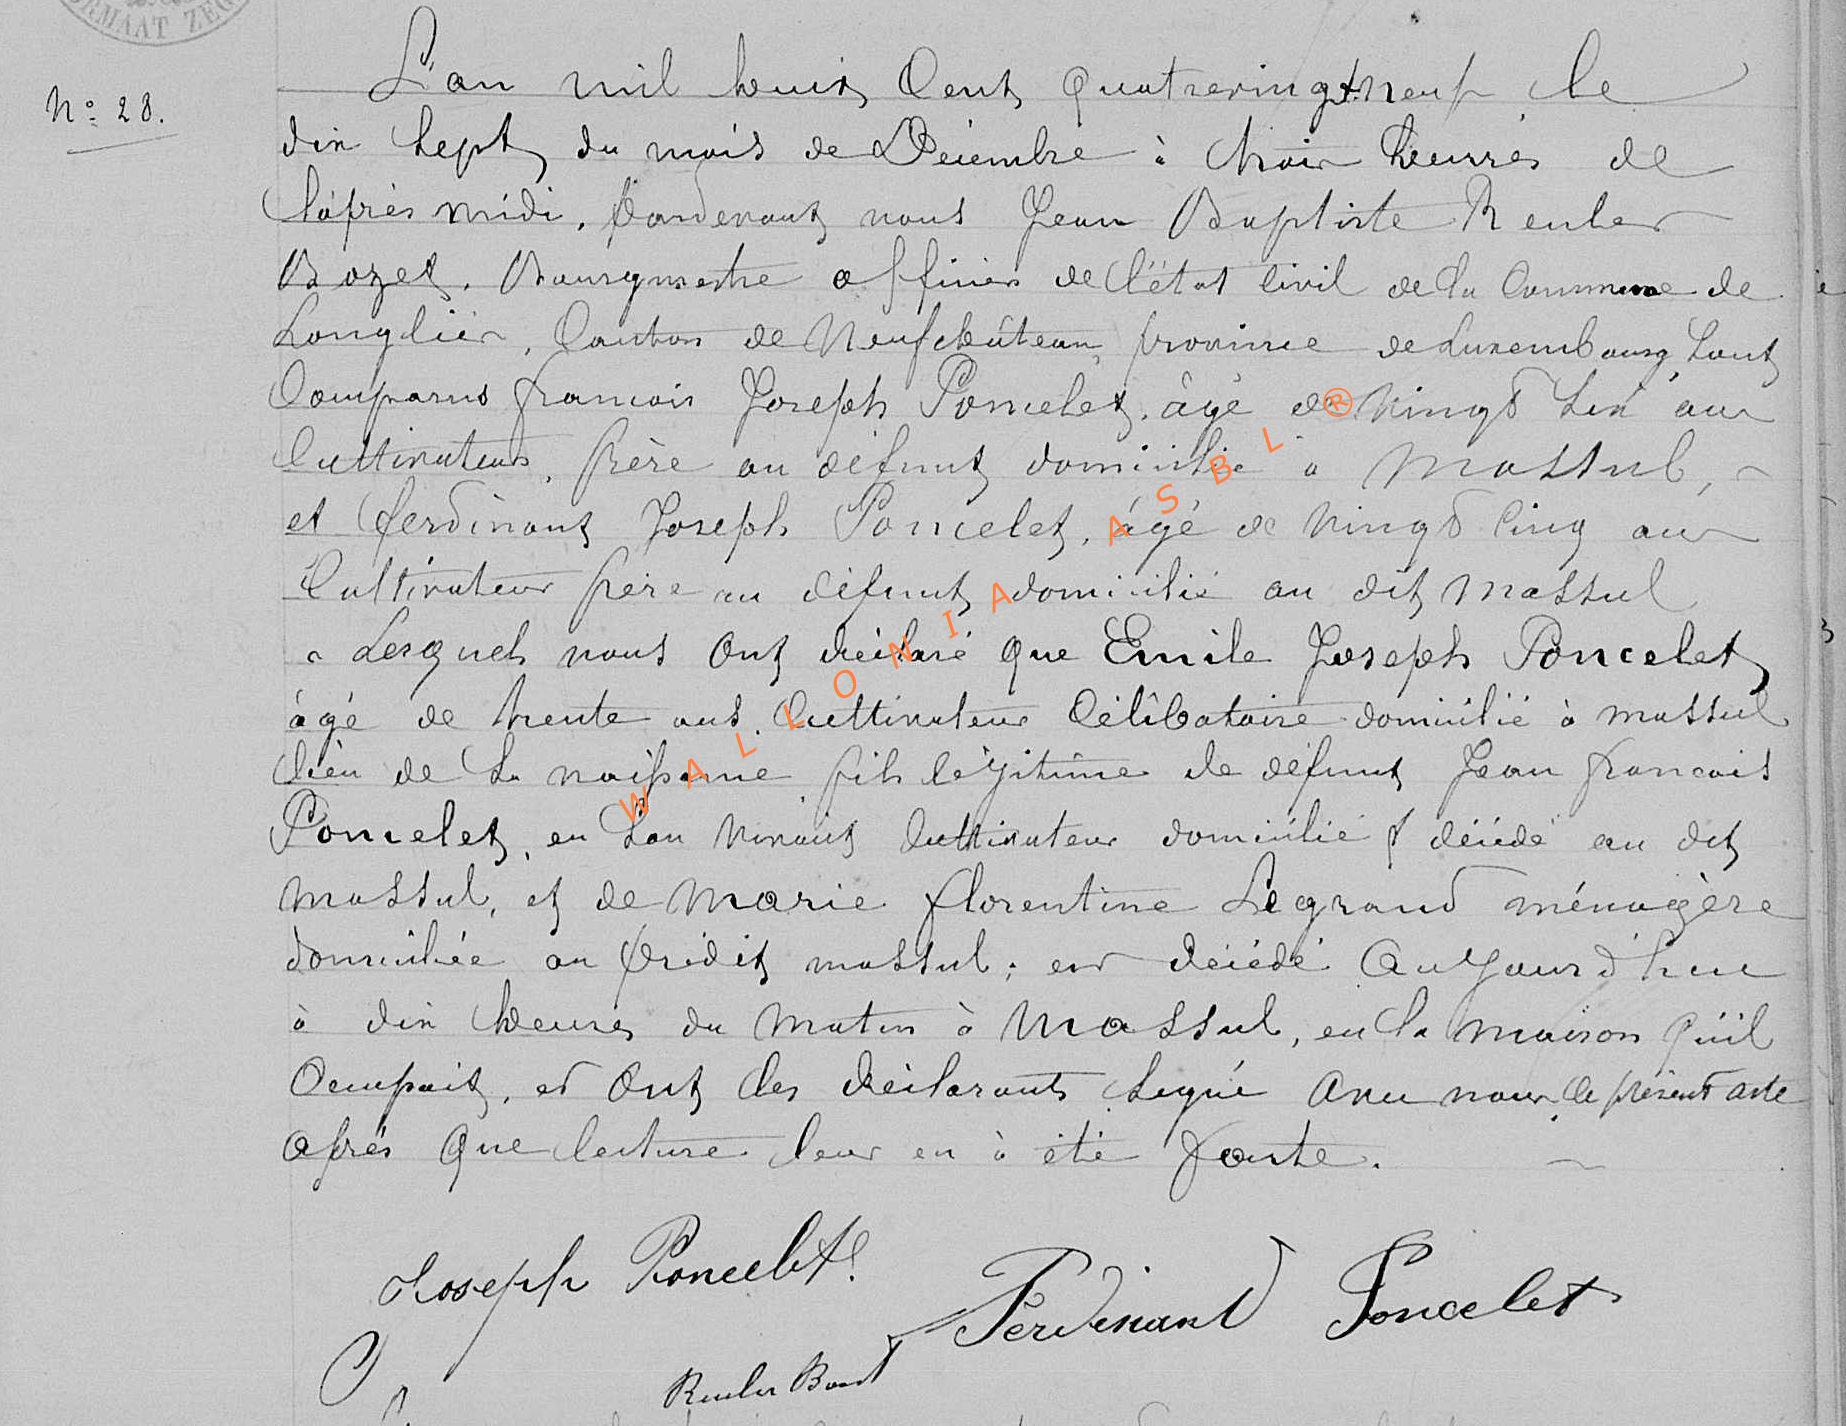 RMAAT ZEG
N° 28.
L'an mil huit Cent quatrevingt neuf le
dix sept du mois de Décembre à trois heurres de
l'après midi, pardevant nous Jean Baptiste Renler
Bozet, Bourgmestre officier de l'état civil de la Commune de
Longlier, Canton de Neufchâteau, province de Luxembourg, sont
Comparus francois Joseph Poncelet, âgé de vingt six ans
Cultivateur, frère au défunt domicilié à Massul,
et ferdinant Joseph Poncelet, âgé de vingt cinq ans
Cultivateur frère au défunt domicilié au dit Massul
Lesquels nous ont déclaré que Emile Joseph Poncelet
âgé de trente ans, Cultivateur Célibataire domicilié à massul
lieu de sa naissance fils légitime de défunt Jean francois
Poncelet, en son vivant Cultivateur domicilié & décédé au dit
massul, et de Marie florentine Legrand ménagère
domiciliée au prédit massul; est décédé Aujourd'hui
à dix heures du matin à Massul, en la maison qu'il
Occupait, et ont les déclarants signé avec nous, le présent acte
après que lecture leur en à été faite.
Joseph Poncelet
Ferdinand Poncelet
Renler Bozet
WALLONIA ASBL ®